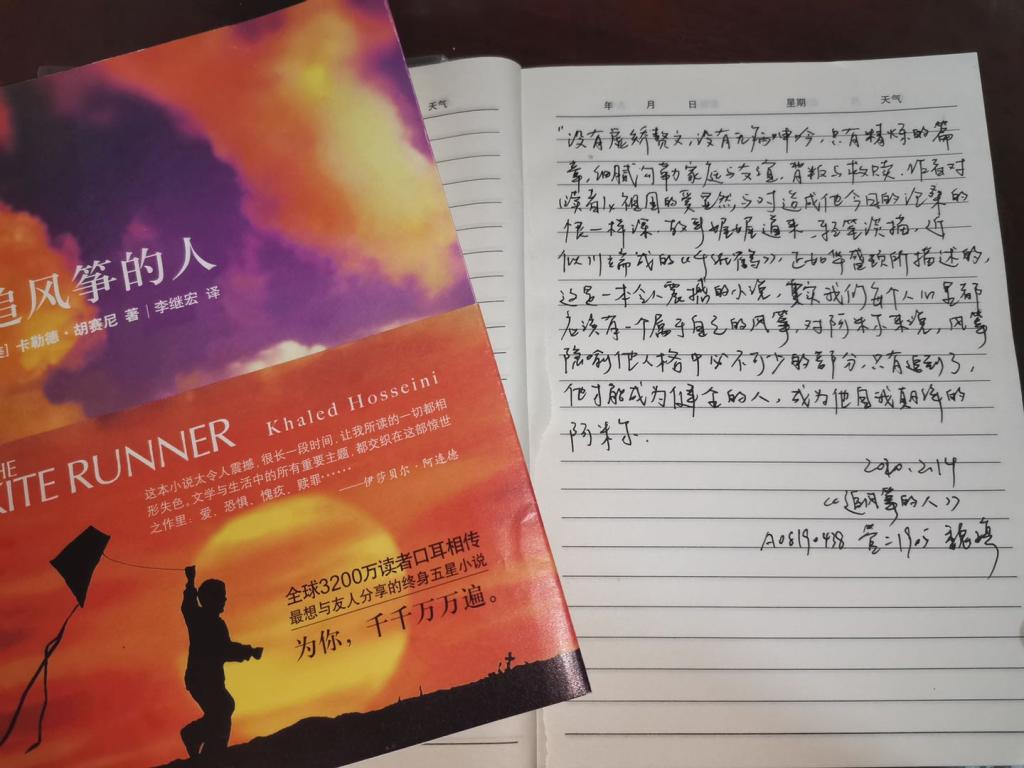 追风筝的人
卡勒德·胡赛尼 著 | 李继宏 译
THE
KITE RUNNER
Khaled Hosseini
这本小说太令人震撼，很长一段时间，让我所读的一切都相
形失色。文学与生活中的所有重要主题，都交织在这部惊世
之作里：爱、恐惧、愧疚、赎罪……
——伊莎贝尔·阿连德
全球3200万读者口耳相传
最想与友人分享的终身五星小说
为你，千千万万遍。
天气
年 月 日 星期 天气
“没有虚矫赘文,没有无病呻吟,只有精炼的篇
章,细腻勾勒家庭与友谊,背叛与救赎,作者对
祖国的爱显然,与对造成他今日的沧桑的
恨一样深.故事娓娓道来,轻笔淡描,近
似川端成的《千纸鹤》,正如华盛顿邮报描述的,
这是一本令人震撼的小说,其实我们每个人心里都
应该有一个属于自己的风筝,对阿米尔来说,风筝
隐喻他人格中必不可少的部分,只有追到了,
他才能成为健全的人,成为他自我期许的
阿米尔.
2020.2.14
《追风筝的人》
A08190438 营二1905